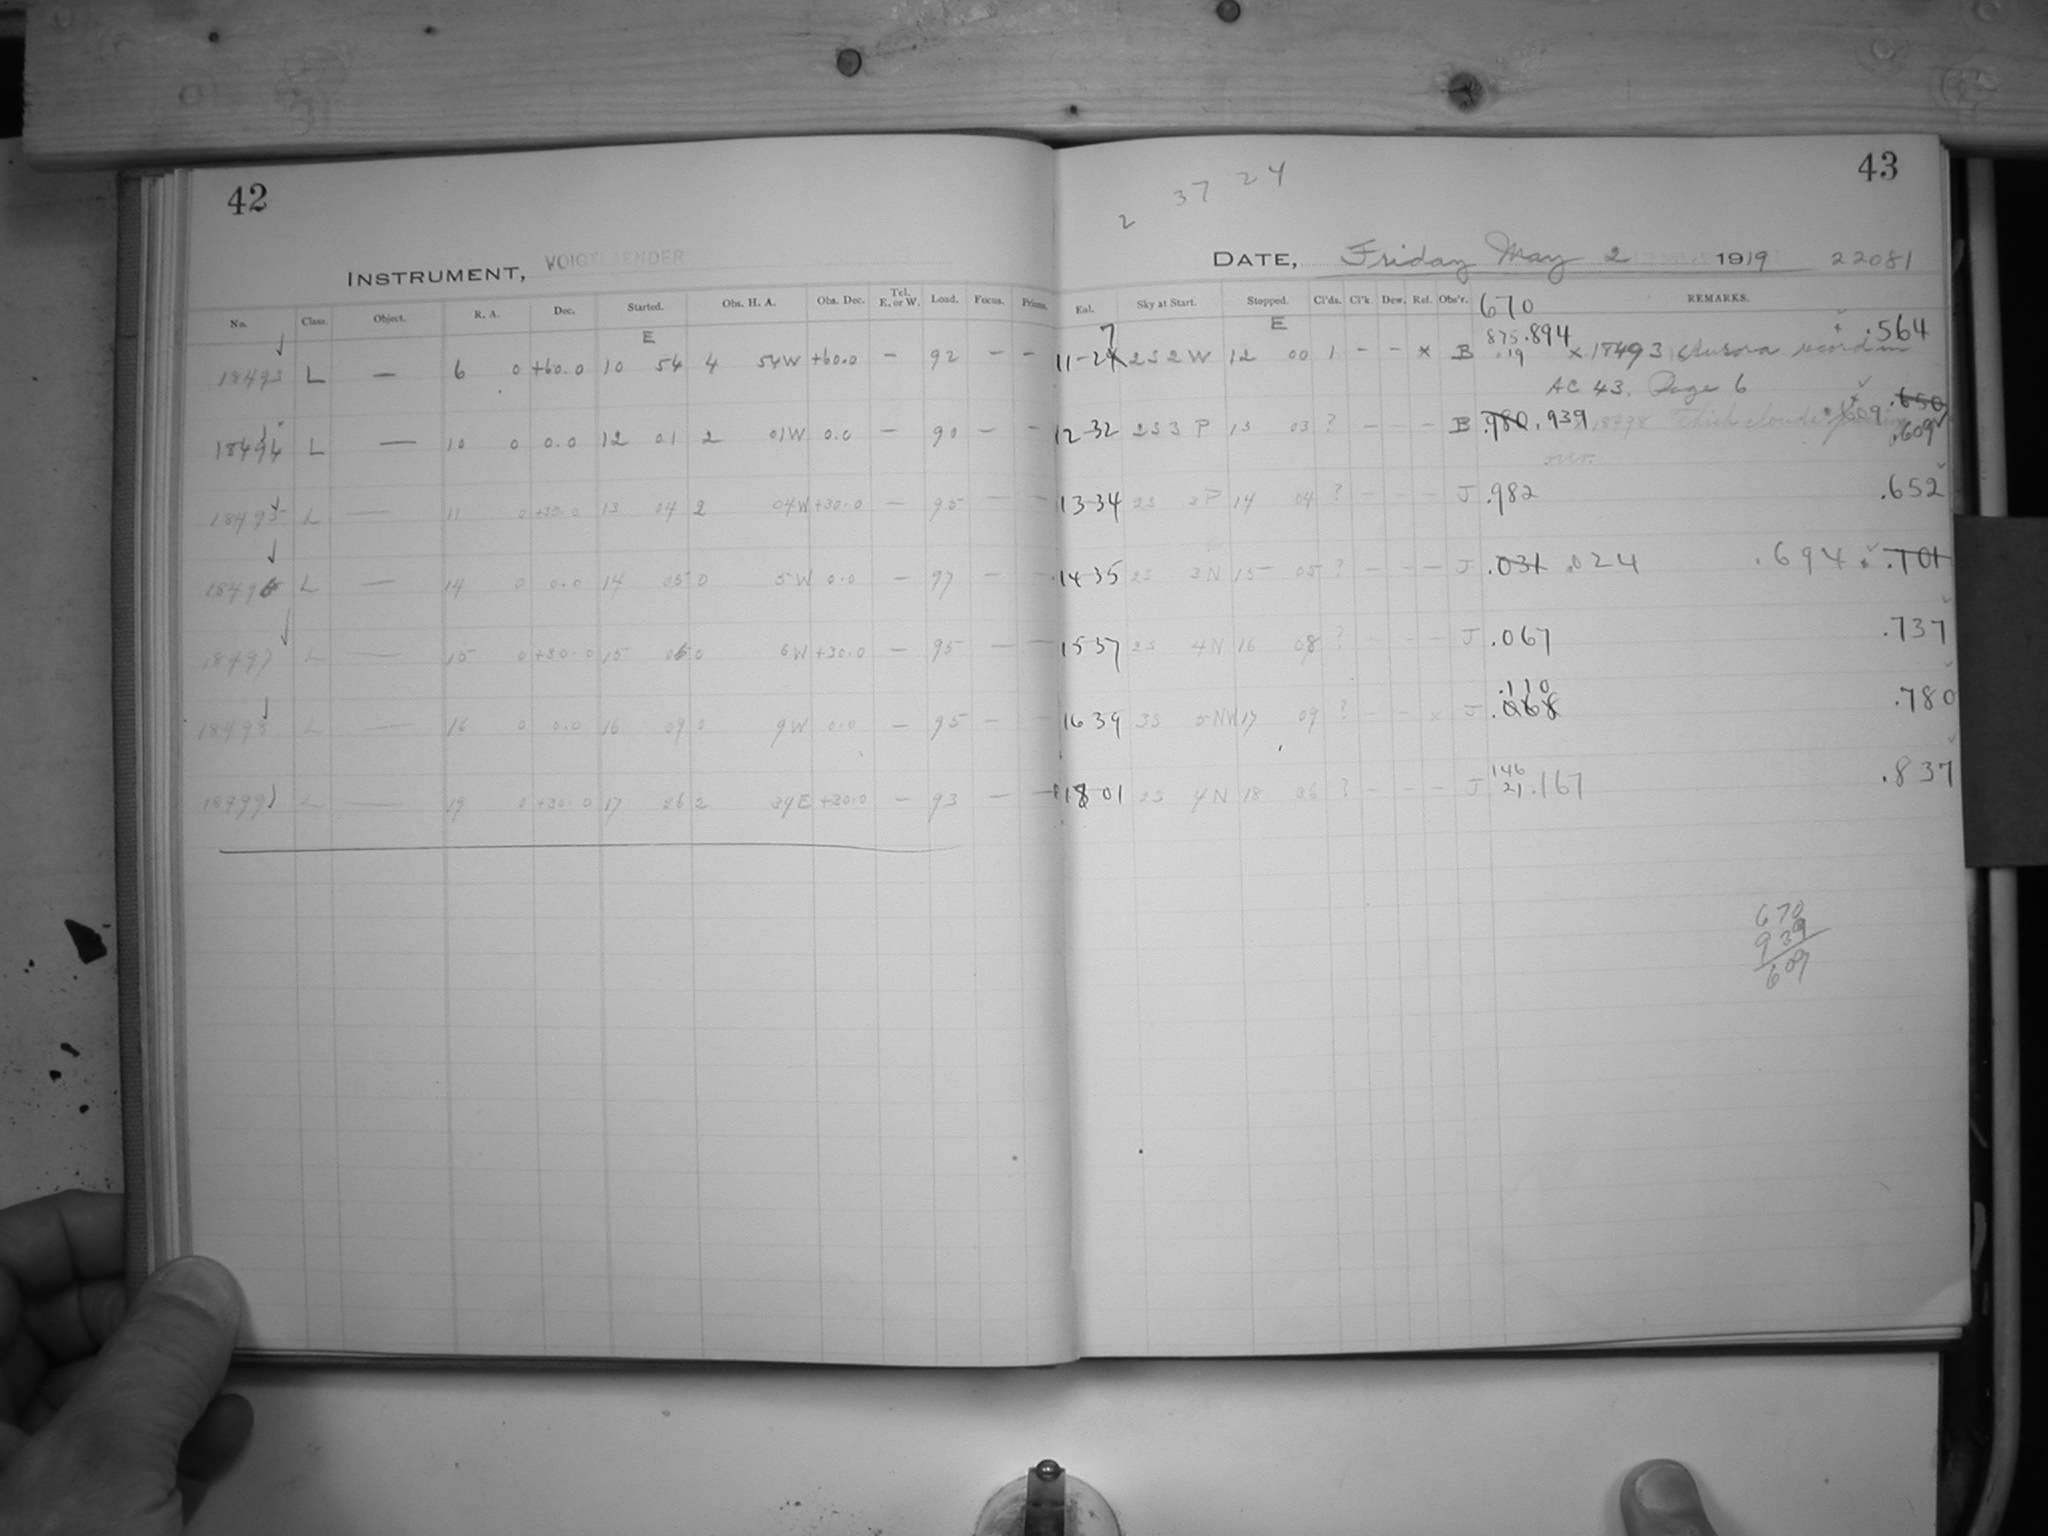 42
INSTRUMENT, VOIGTLAENDER
No. Class. Object. R. A. Dec. Started. Obs. H. A. Obs. Dec. Tel. E. or W. Load. Focus. Prisms.
E
18493 L — 6 0 +60.0 10 54 4 54W +60.0 — 92 — —
18494 L — 10 0 0.0 12 01 2 01W 0.0 — 90 — —
18495 L — 11 0 +30.0 13 04 2 04W +30.0 — 95 — —
18496 L — 14 0 0.0 14 05 0 5W 0.0 — 97 — —
18497 L — 15 0 +30.0 15 06 0 6W +30.0 — 95 — —
18498 L — 16 0 0.0 16 09 0 9W 0.0 — 95 — —
18499 L — 19 0 +30.0 17 26 2 34E +30.0 — 93 — —
43
2 37 24
DATE, Friday May 2 1919 22081
Eal. Sky at Start. Stopped. Cl'ds. Cl'k. Dew. Ref. Obs'r. REMARKS.
670
7 E
11-24 2S 2 W 12 00 1 - - x B 875 .894 .564
.19 x 18493 Aurora record in
AC 43. Page 6
12-32 2S 3 P 13 03 ? - - - B .980 .939 18498 Thick clouds passing .609 .650
.609
over.
13-34 2S 3P 14 04 ? - - - J .982 .652
14 35 2S 3N 15 05 ? - - - J .031 .024 .694 .701
15 37 2S 4N 16 08 ? - - - J .067 .737
.110
16 39 3S 5NW 17 09 ? - - x J .068 .780
146
18 01 2S 4N 18 36 ? - - - J 21 .167 .837
670
939
609